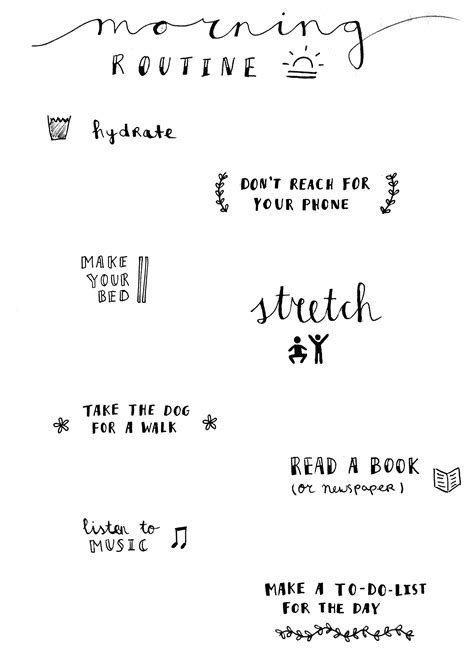 morning
ROUTINE
hydrate
DON'T REACH FOR
YOUR PHONE
MAKE
YOUR
BED
stretch
TAKE THE DOG
FOR A WALK
READ A BOOK
(or newspaper)
listen to
MUSIC
MAKE A TO-DO-LIST
FOR THE DAY